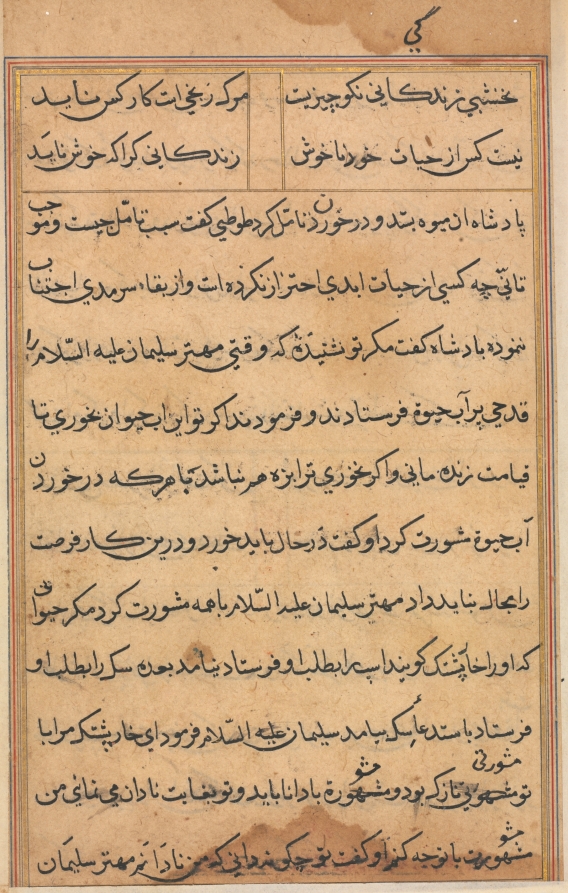 گی
نخشبی زندکانی نکو چیزیست
مرکه زنجی ات کار کس ناید
نیست کس از حیات خود ناخوش
زندکانی کرا که خوش ناید
پادشاه ان میوه بستد و در خوردن تامل کرد طوطی کفت سبب تامل چیست و موجب
تانی چه کسی از حیات ابدی احتراز نکرده است و از بقاء سرمدی اجتناب
ننموده بادشاه کفت مکر تو نشنیدهٔ که وقتی مهتر سلیمان علیه السلام را
قدحی پر آب حیوة فرستادند و فرمودند اکر تو این اب حیوان بخوری تا
قیامت زنده مانی و اکر نخوری ترا بزه هم نباشد با هرکه در خوردن
آب حیوة مشورت کرد او کفت در حال باید خورد و درین کار فرصت
را مجال نباید داد مهتر سلیمان علیه السلام با همه مشورت کرد مکر حیوانی
که او را خارپشتک کویند اسپ را بطلب او فرستاد نیامد بعده سک را بطلب او
فرستاد باستدعاء سک بیامد سلیمان علیه السلام فرمود ای خارپشتک مرا با
تو مشورتی نازک بود و مشورة با دانا باید و تو بغایت نادان می نمائی من
مشورت با تو چه کنم او کفت تو چکونه دانی که من نادانم مهتر سلیمان